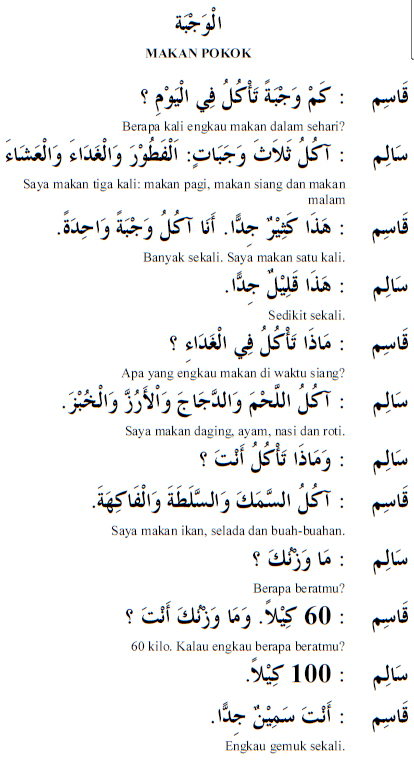 الْوَجْبَة
MAKAN POKOK
قَاسِم : كَمْ وَجْبَةً تَأْكُلُ فِي الْيَوْمِ ؟
Berapa kali engkau makan dalam sehari?
سَالِم : آكُلُ ثَلَاثَ وَجَبَاتٍ: اَلْفَطُوْرَ وَالْغَدَاءَ وَالْعَشَاءَ
Saya makan tiga kali: makan pagi, makan siang dan makan
malam
قَاسِم : هَذَا كَثِيْرٌ جِدًّا. أَنَا آكُلُ وَجْبَةً وَاحِدَةً.
Banyak sekali. Saya makan satu kali.
سَالِم : هَذَا قَلِيْلٌ جِدًّا.
Sedikit sekali.
قَاسِم : مَاذَا تَأْكُلُ فِي الْغَدَاءِ ؟
Apa yang engkau makan di waktu siang?
سَالِم : آكُلُ اللَّحْمَ وَالدَّجَاجَ وَالْأَرُزَّ وَالْخُبْزَ.
Saya makan daging, ayam, nasi dan roti.
سَالِم : وَمَاذَا تَأْكُلُ أَنْتَ ؟
قَاسِم : آكُلُ السَّمَكَ وَالسَّلَطَةَ وَالْفَاكِهَةَ.
Saya makan ikan, selada dan buah-buahan.
سَالِم : مَا وَزْنُكَ ؟
Berapa beratmu?
قَاسِم : 60 كِيْلاً. وَمَا وَزْنُكَ أَنْتَ ؟
60 kilo. Kalau engkau berapa beratmu?
سَالِم : 100 كِيْلاً.
قَاسِم : أَنْتَ سَمِيْنٌ جِدًّا.
Engkau gemuk sekali.